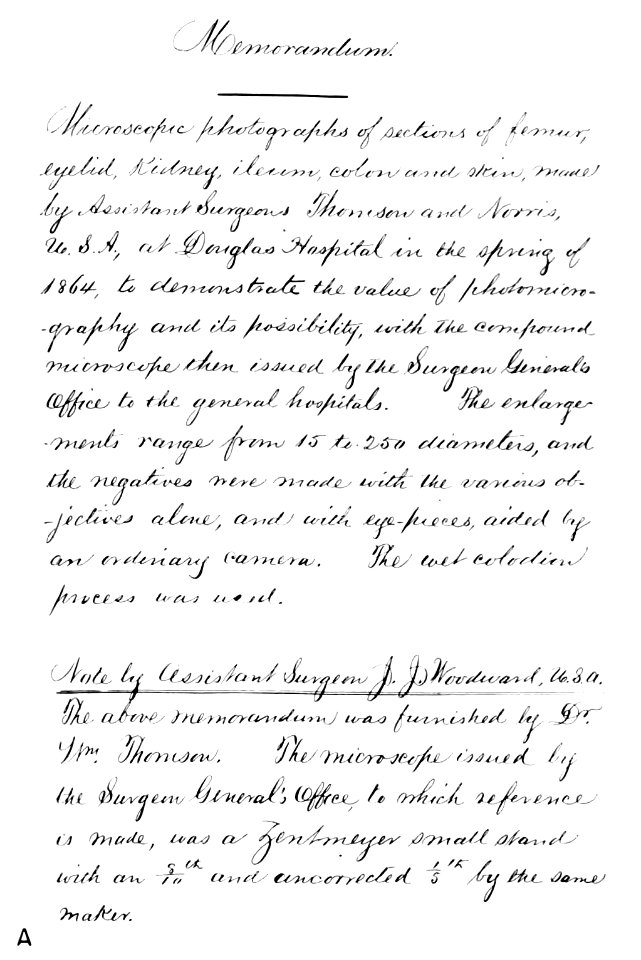 Memorandum.
Microscopic photographs of sections of femur,
eyelid, Kidney, ileum, colon and skin, made
by Assistant Surgeons Thomson and Norris,
U.S.A., at Douglas Hospital in the spring of
1864, to demonstrate the value of photomicro-
-graphy and its possibility, with the compound
microscope then issued by the Surgeon General's
Office to the general hospitals. The enlarge-
-ments range from 15 to 250 diameters, and
the negatives were made with the various ob-
-jectives alone, and with eye-pieces, aided by
an ordinary camera. The wet colodion
process was used.
Note by Assistant Surgeon J. J. Woodward, U.S.A.
The above memorandum was furnished by Dr.
Wm. Thomson. The microscope issued by
the Surgeon General's Office, to which reference
is made, was a Zentmeyer small stand
with an 8/10th and uncorrected 1/5th by the same
maker.
A